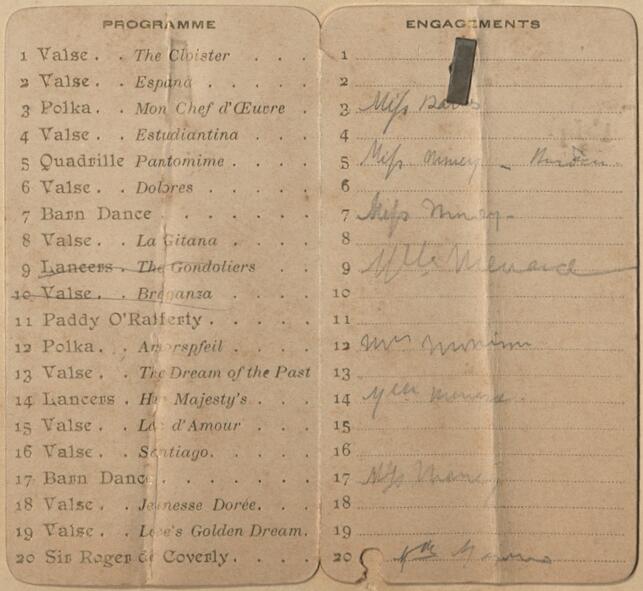 PROGRAMME
1 Valse . . The Cloister . . .
2 Valse . . España . . . .
3 Polka . . Mon Chef d'Œuvre .
4 Valse . . Estudiantina . . .
5 Quadrille Pantomime . . . .
6 Valse . . Dolores . . . .
7 Barn Dance . . . . . .
8 Valse . . La Gitana . . . .
9 Lancers . The Gondoliers . . .
10 Valse . . Braganza . . . .
11 Paddy O'Rafferty . . . . .
12 Polka . . Amorspfeil . . . .
13 Valse . . The Dream of the Past
14 Lancers . His Majesty's . . .
15 Valse . . Lac d'Amour . . .
16 Valse . . Santiago . . . .
17 Barn Dance . . . . . .
18 Valse . . Jeunesse Dorée . . .
19 Valse . . Love's Golden Dream .
20 Sir Roger de Coverly . . . .
ENGAGEMENTS
1
2
3 Miss
4
5 Miss
6
7 Miss
8
9
10
11
12 Mrs
13
14
15
16
17 Miss
18
19
20